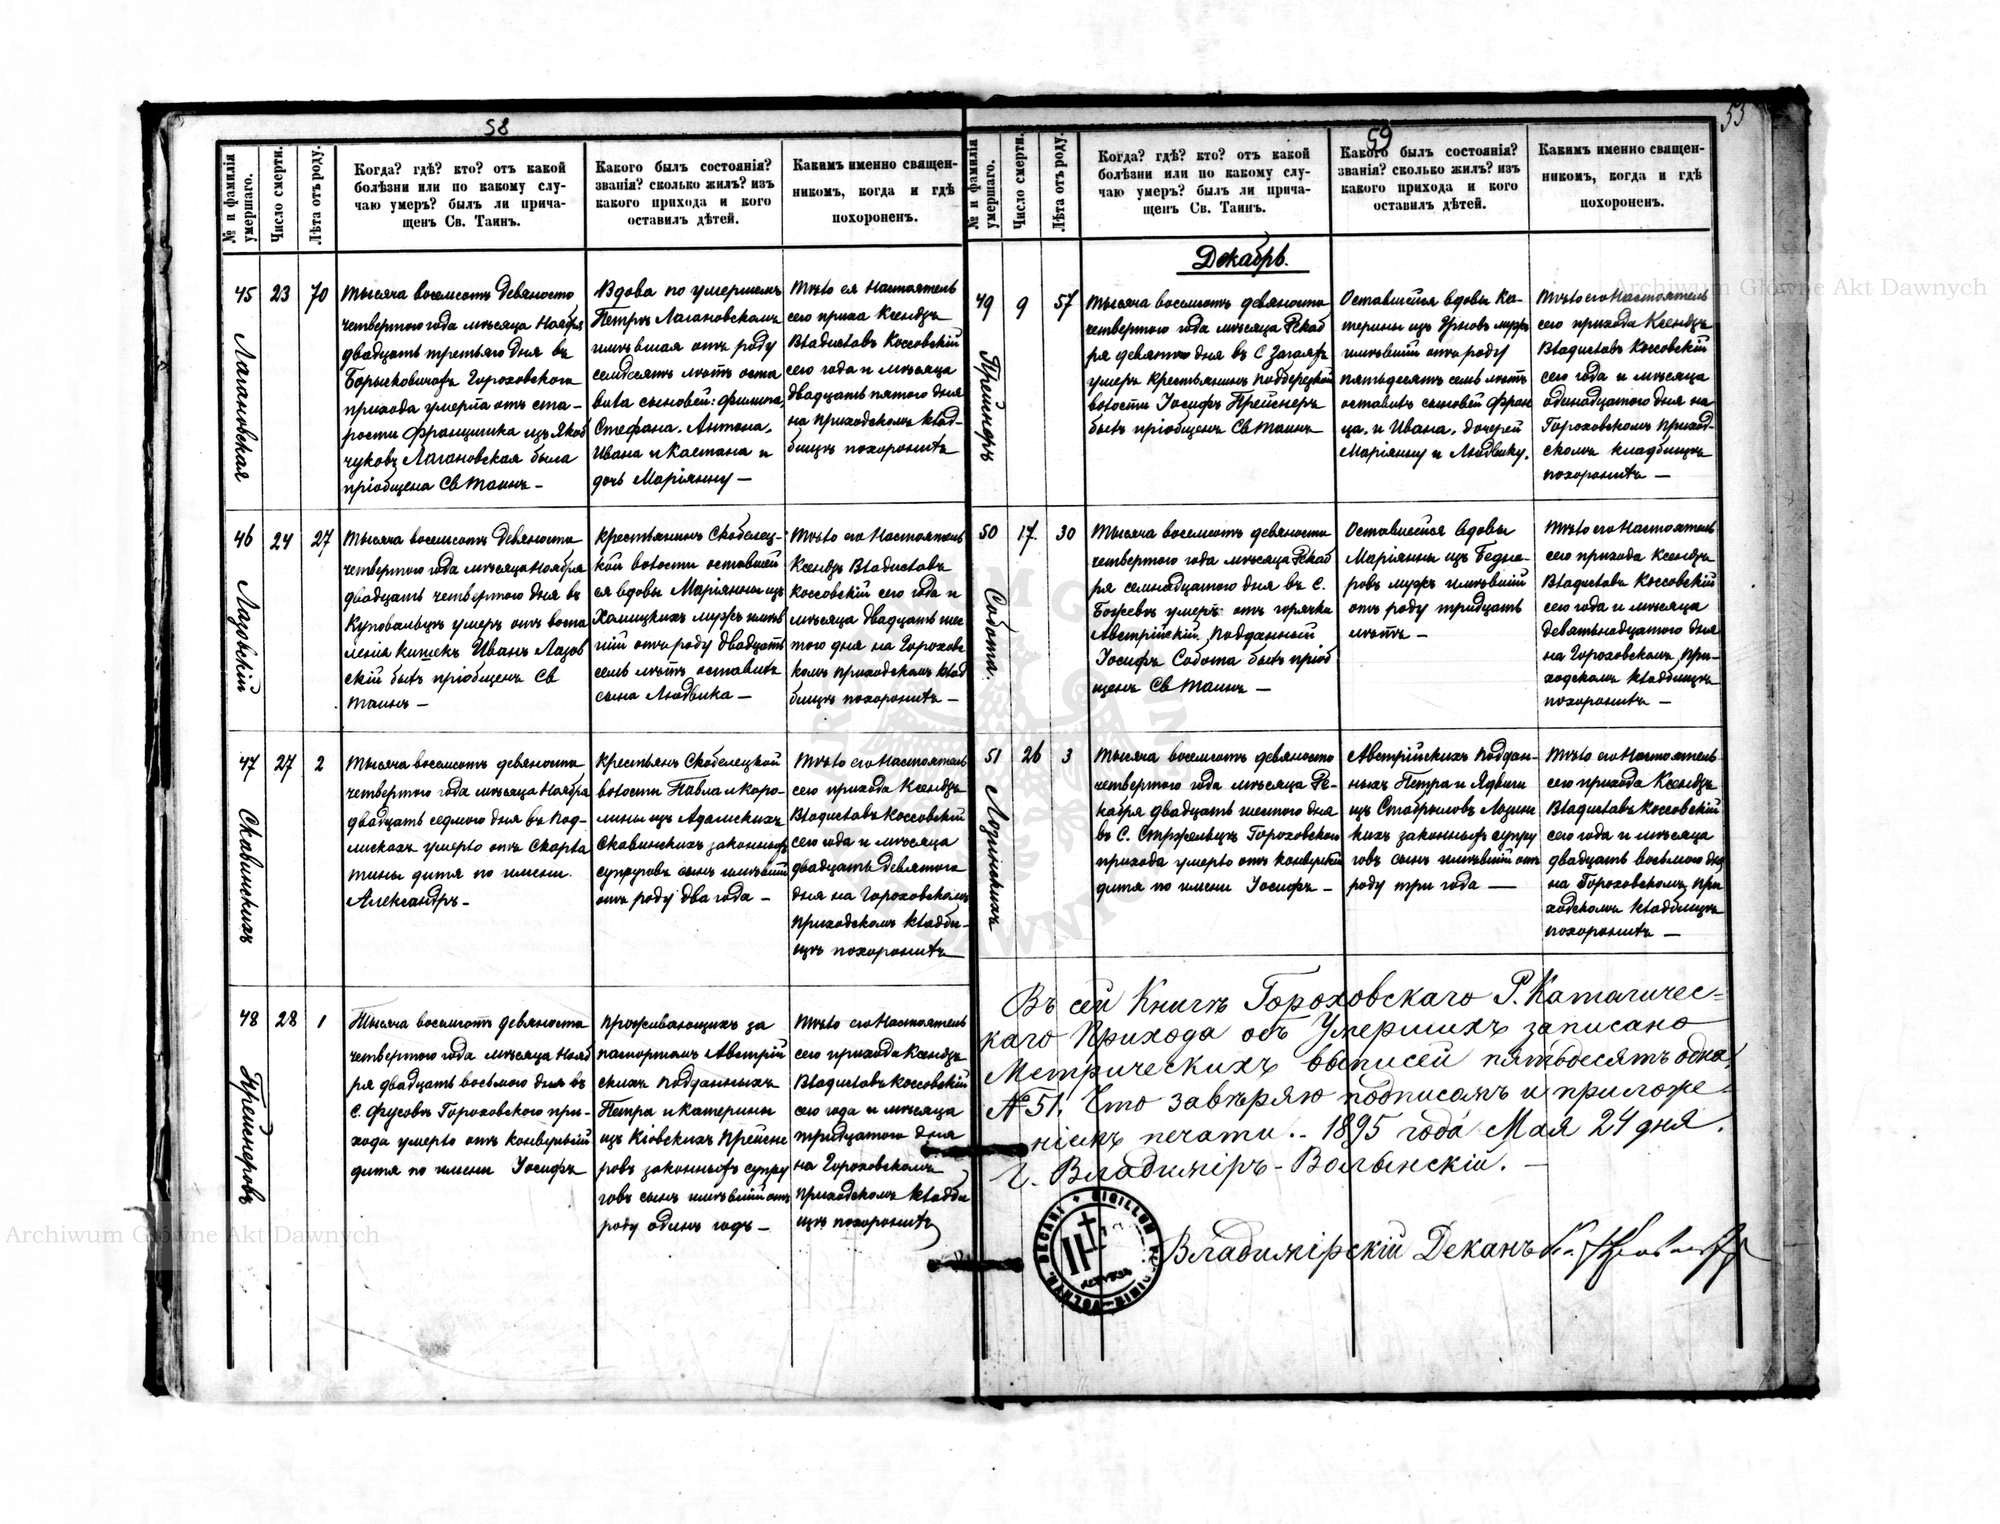 58
№ и фамилія умершаго.
Число смерти.
Лѣта отъ роду.
Когда? гдѣ? кто? отъ какой
болѣзни или по какому слу-
чаю умеръ? былъ ли прича-
щенъ Св. Таинъ.
Какого былъ состоянія?
званія? сколько жилъ? изъ
какого прихода и кого
оставилъ дѣтей.
Какимъ именно священ-
никомъ, когда и гдѣ
похороненъ.
45
Лагановская
23
70
Тысяча восемсотъ девяносто
четвертого года мѣсяца Ноября
двадцать третьяго дня въ
Гороховского
прихода умерла отъ ста-
рости Францишка изъ Яков
чуковъ Лагановская была
пріобщена Св Таинъ —
Вдова по умершемъ
Петръ Лагановскомъ
имѣвшая отъ роду
семдесятъ лѣтъ оста
вила сыновей: Филипа,
Стефана, Антона,
Ивана и Каетана и
дочь Маріянну —
Тѣло ея Настоятель
сего прихо Ксендзъ
Владиславъ Коссовскій
сего года и мѣсяца
двадцать пятого дня
на приходскомъ клад-
бищѣ похоронилъ
46
Лазовскій
24
27
Тысяча восемсотъ девяносто
четвертого года мѣсяца Ноября
двадцать четвертого дня въ
Куповальцѣ умеръ отъ воспа
ленія кишекъ Иванъ Лазов
скій былъ пріобщенъ Св
Таинъ —
Крестьянинъ Скобелец-
кой волости оставшей
ся вдовы Маріянны изъ
Хамицкихъ мужъ имѣв
шій отъ роду двадцать
семь лѣтъ оставилъ
сына Людвика —
Тѣло его Настоятель
Ксендзъ Владиславъ
Коссовскій сего года и
мѣсяца двадцать шес
того дня на Горохов
скомъ приходскомъ клад
бищѣ похоронилъ —
47
Скавинскихъ
27
2
Тысяча восемсотъ девяносто
четвертого года мѣсяца Ноября
двадцать седмого дня въ Под-
лискахъ умерло отъ Скарла
тины дитя по имени
Александръ —
Крестьянъ Скобелецкой
волости Павла и Каро-
лины изъ Адамскихъ
Скавинскихъ законныхъ
супруговъ сынъ имѣвшій
отъ роду два года —
Тѣло его Настоятель
сего прихода Ксендзъ
Владиславъ Коссовскій
сего года и мѣсяца
двадцать девятого
дня на Гороховскомъ
приходскомъ кладби-
щѣ похоронилъ
48
Прейснеровъ
28
1
Тысяча восемсотъ девяноста
четвертого года мѣсяца Нояб
ря двадцать восьмого дня въ
с. Фусовъ Гороховского при-
хода умерло отъ конвульсій
дитя по имени Іосифъ
Проживающихъ за
паспортомъ Австрій
скихъ подданныхъ
Петра и Катерины
изъ Кіовскихъ Прейсне
ровъ законныхъ супру
говъ сынъ имѣвшій отъ
роду одинъ годъ —
Тѣло его Настоятель
сего прихода Ксендзъ
Владиславъ Коссовскій
сего года и мѣсяца
тридцатого дня
на Гороховскомъ
приходскомъ кладби
щѣ похоронилъ
59
53
№ и фамилія умершаго.
Число смерти.
Лѣта отъ роду.
Когда? гдѣ? кто? отъ какой
болѣзни или по какому слу-
чаю умеръ? былъ ли прича-
щенъ Св. Таинъ.
Какого былъ состоянія?
званія? сколько жилъ? изъ
какого прихода и кого
оставилъ дѣтей.
Какимъ именно священ-
никомъ, когда и гдѣ
похороненъ.
Декабрь.
49
Прейснеръ
9
57
Тысяча восемсотъ девяносто
четвертого года мѣсяца Декаб
ря девятого дня въ С
умеръ крестьянинъ Подберезкой
волости Іосифъ Прейснеръ
былъ пріобщенъ Св Таинъ
Оставшейся вдовы Ка-
терины изъ мужъ
имѣвшій отъ роду
пятьдесятъ семь лѣтъ
оставилъ сыновей Фран
ца, и Ивана, дочерей
Маріянну и Людвику.
Тѣло его Настоятель
сего прихода Ксендзъ
Владиславъ Коссовскій
сего года и мѣсяца
одинадцатого дня на
Гороховскомъ приход-
скомъ кладбищѣ
похоронилъ —
50
Собота.
17.
30
Тысяча восемсотъ девяносто
четвертого года мѣсяца Декаб
ря семнадцатого дня въ с.
Божевъ умеръ отъ горячки
Австрійскій Подданный
Іосифъ Собота былъ пріоб
щенъ Св Таинъ —
Оставшейся вдовы
Маріянны изъ Бедна
ровъ мужъ имѣвшій
отъ роду тридцать
лѣтъ —
Тѣло его Настоятель
сего прихода Ксендзъ
Владиславъ Коссовскій
сего года и мѣсяца
девятьнадцатого дня
на Гороховскомъ при-
ходскомъ кладбищѣ
похоронилъ —
51
Лозинскихъ
26
3
Тысяча восемсотъ девяносто
четвертого года мѣсяца Де-
кабря двадцать шестого дня
въ С. Стрѣльцѣ Гороховскаго
прихода умерло отъ конвульсій
дитя по имени Іосифъ —
Австрійскихъ Поддан-
ныхъ Петра и Ядвиги
изъ Стабрыловъ Лозин
кихъ законныхъ супру
говъ сынъ имѣвшій отъ
роду три года —
Тѣло его Настоятель
сего прихода Ксендзъ
Владиславъ Коссовскій
сего года и мѣсяца
двадцать восьмого дня
на Гороховскомъ при
ходскомъ кладбищѣ
похоронилъ —
Въ сей Книгѣ Гороховскаго Р. Католичес=
каго Прихода объ Умершихъ записано
Метрическихъ выписей пятьдесятъ одна,
№ 51. Что завѣряю подписомъ и приложе=
ніемъ печати. - 1895 года Мая 24 дня.
г. Владиміръ-Волынскій. —
Владимірскій Деканъ
SIGILLUM
DECANI
Archiwum Główne Akt Dawnych
Archiwum Główne Akt Dawnych